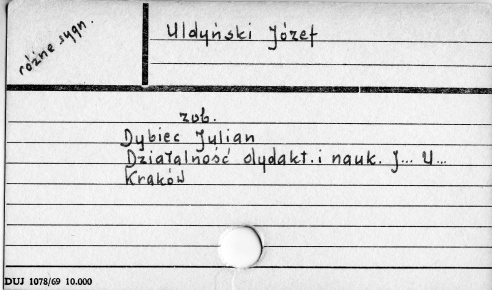 różne sygn.
Uldyński Józef
zob.
Dybiec Julian
Działalność dydakt. i nauk. J... U...
Kraków
DUJ 1078/69 10.000